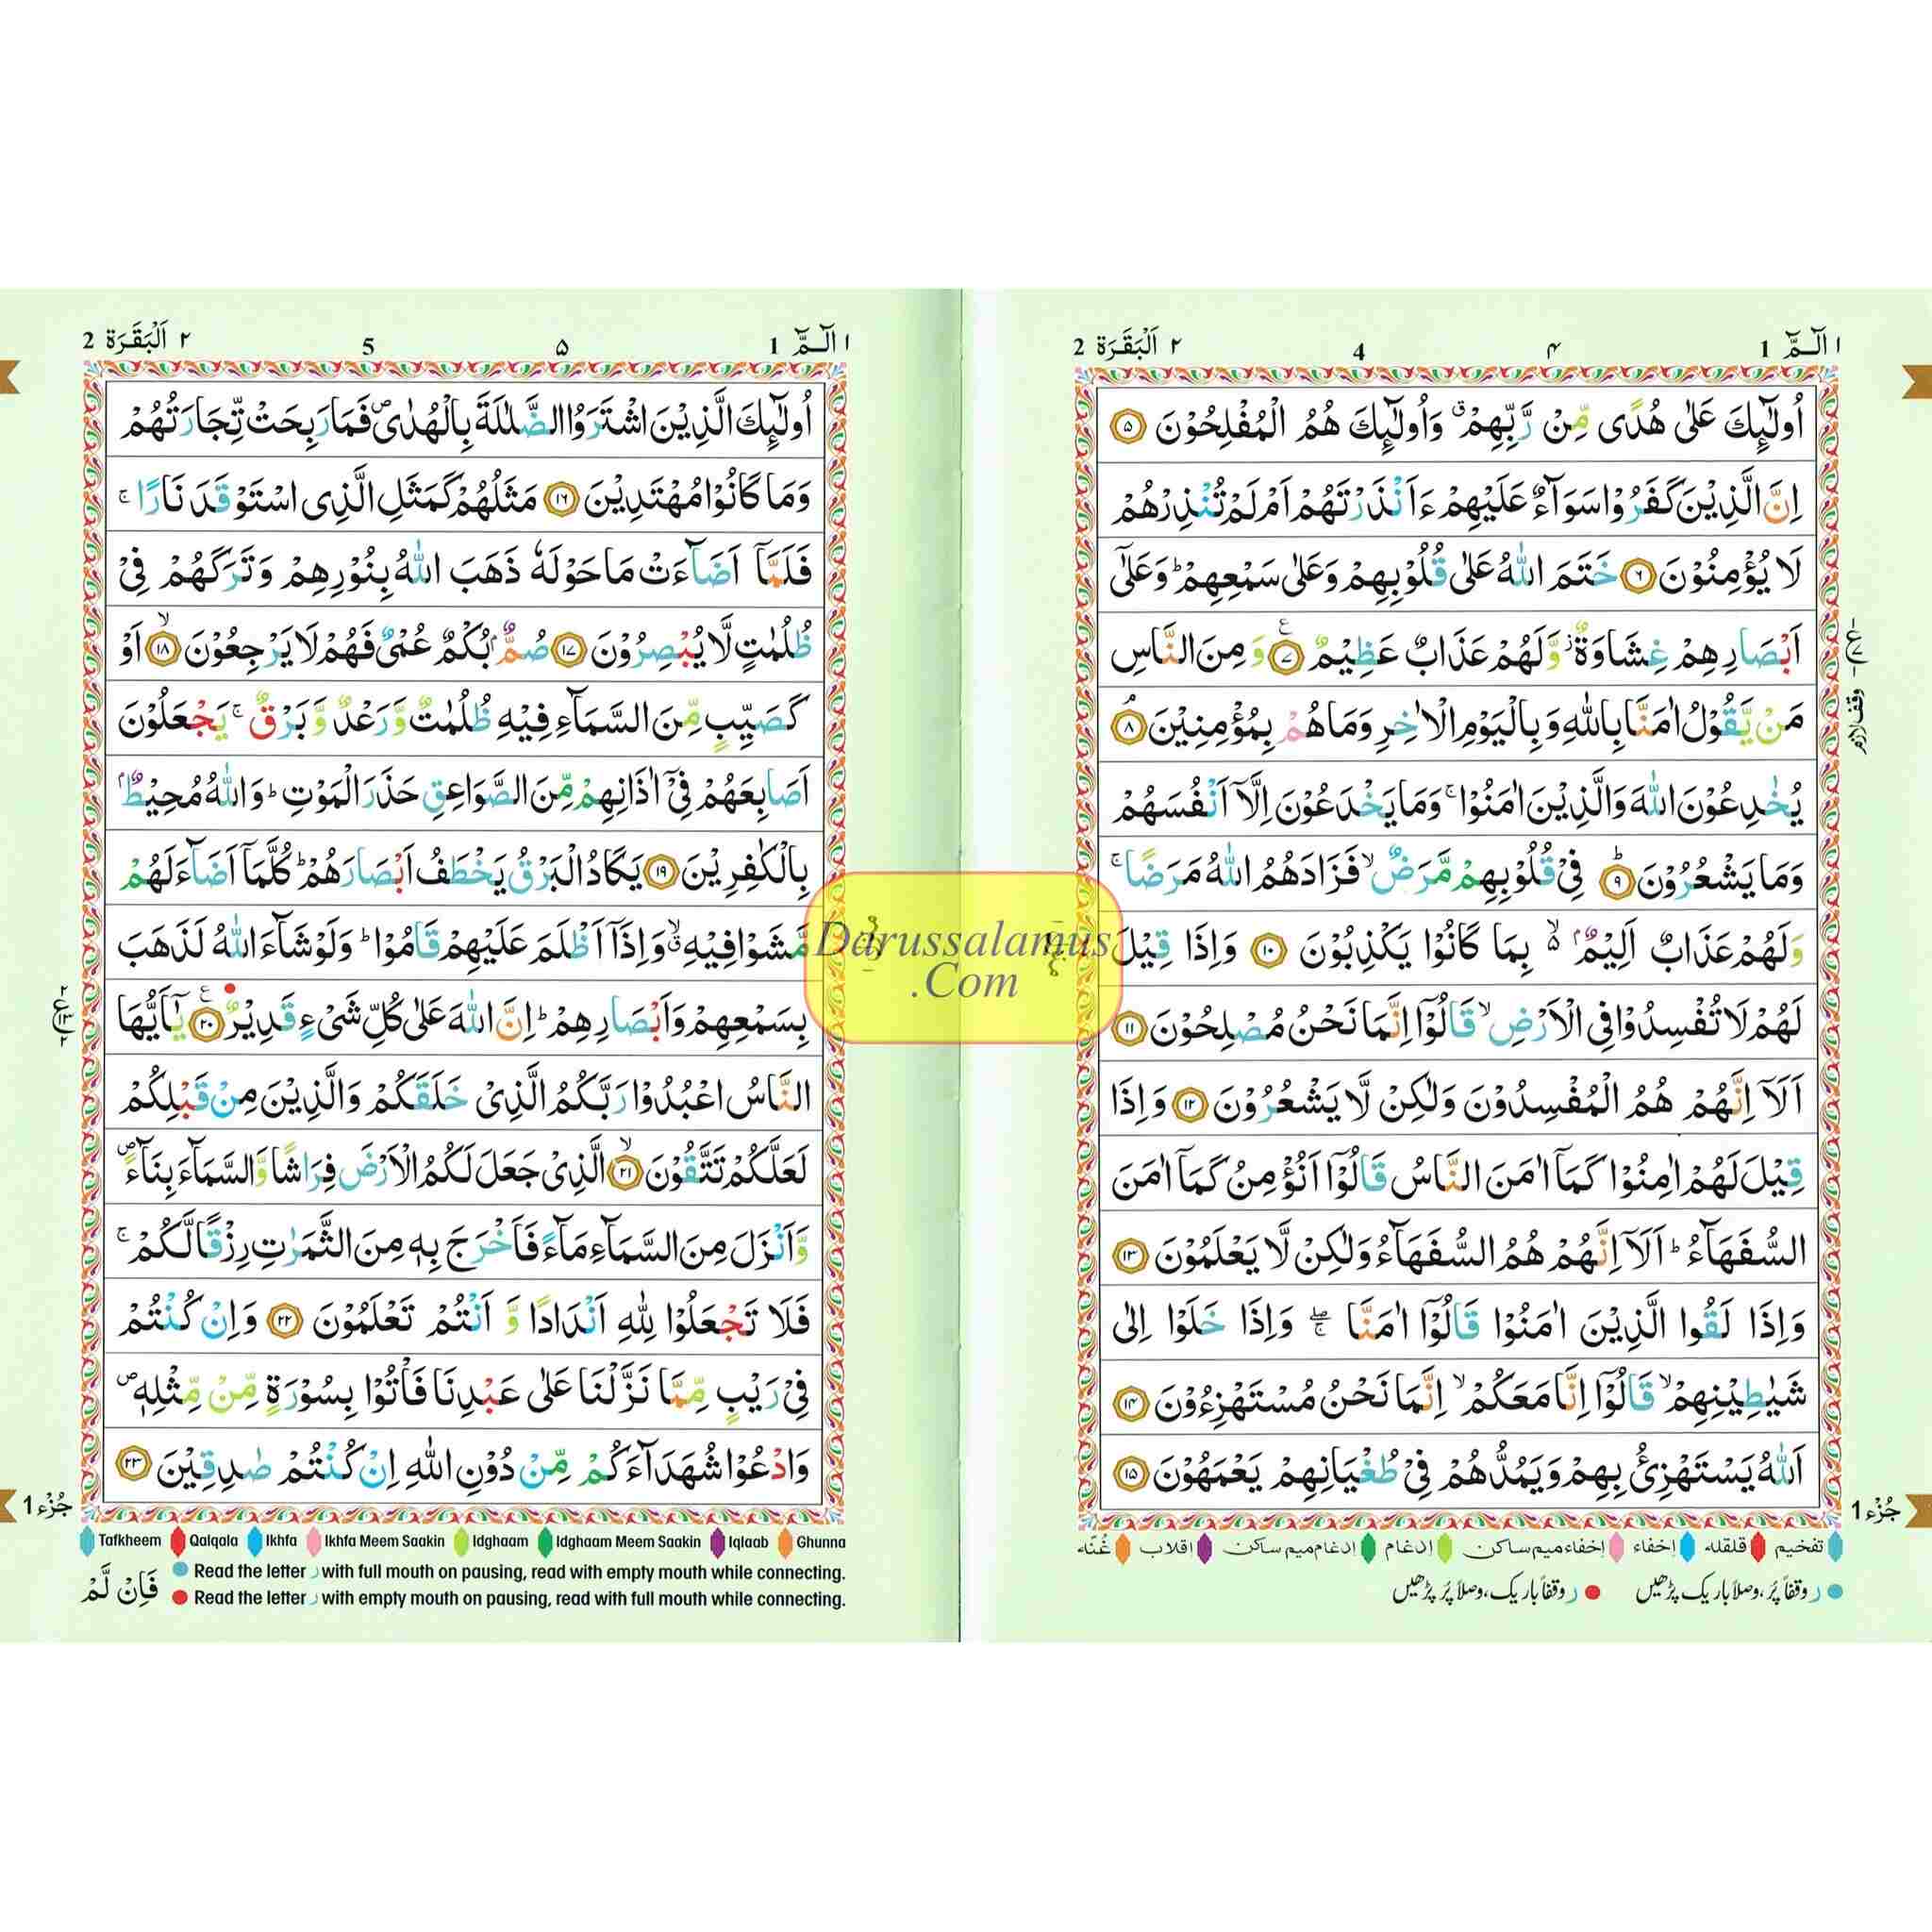 ١ الٓمّٓ 1
۴
4
٢ اَلْبَقَرَة 2
اُولٰٓئِكَ عَلٰى هُدًى مِّنْ رَّبِّهِمْ ۗ وَاُولٰٓئِكَ هُمُ الْمُفْلِحُوْنَ ۵
اِنَّ الَّذِيْنَ كَفَرُوْا سَوَآءٌ عَلَيْهِمْ ءَاَنْذَرْتَهُمْ اَمْ لَمْ تُنْذِرْهُمْ
لَا يُؤْمِنُوْنَ ۶ خَتَمَ اللّٰهُ عَلٰى قُلُوْبِهِمْ وَعَلٰى سَمْعِهِمْ ؕ وَعَلٰٓى
اَبْصَارِهِمْ غِشَاوَةٌ ز وَّلَهُمْ عَذَابٌ عَظِيْمٌ ۷ ع وَمِنَ النَّاسِ
مَنْ يَّقُوْلُ اٰمَنَّا بِاللّٰهِ وَبِالْيَوْمِ الْاٰخِرِ وَمَا هُمْ بِمُؤْمِنِيْنَ ۘ ۸
يُخٰدِعُوْنَ اللّٰهَ وَالَّذِيْنَ اٰمَنُوْا ۚ وَمَا يَخْدَعُوْنَ اِلَّاۤ اَنْفُسَهُمْ
وَمَا يَشْعُرُوْنَ ؕ ۹ فِيْ قُلُوْبِهِمْ مَّرَضٌ ۙ فَزَادَهُمُ اللّٰهُ مَرَضًا ۚ
وَلَهُمْ عَذَابٌ اَلِيْمٌۢ ۙ بِمَا كَانُوْا يَكْذِبُوْنَ ۱۰ وَاِذَا قِيْلَ
لَهُمْ لَا تُفْسِدُوْا فِى الْاَرْضِ ۙ قَالُوْۤا اِنَّمَا نَحْنُ مُصْلِحُوْنَ ۱۱
اَلَاۤ اِنَّهُمْ هُمُ الْمُفْسِدُوْنَ وَلٰكِنْ لَّا يَشْعُرُوْنَ ۱۲ وَاِذَا
قِيْلَ لَهُمْ اٰمِنُوْا كَمَاۤ اٰمَنَ النَّاسُ قَالُوْۤا اَنُؤْمِنُ كَمَاۤ اٰمَنَ
السُّفَهَآءُ ؕ اَلَاۤ اِنَّهُمْ هُمُ السُّفَهَآءُ وَلٰكِنْ لَّا يَعْلَمُوْنَ ۱۳
وَاِذَا لَقُوا الَّذِيْنَ اٰمَنُوْا قَالُوْۤا اٰمَنَّا ۖۚ وَاِذَا خَلَوْا اِلٰى
شَيٰطِيْنِهِمْ ۙ قَالُوْۤا اِنَّا مَعَكُمْ ۙ اِنَّمَا نَحْنُ مُسْتَهْزِءُوْنَ ۱۴
اَللّٰهُ يَسْتَهْزِئُ بِهِمْ وَيَمُدُّهُمْ فِيْ طُغْيَانِهِمْ يَعْمَهُوْنَ ۱۵
وقف لازم
جُزْء 1
تفخیم قلقله إخفاء إخفاء میم ساکن إدغام إدغام میم ساکن اقلاب غُنّاء
ر وقفاً پُر، وصلاً باریک پڑھیں ر وقفاً باریک، وصلاً پُر پڑھیں
١ الٓمّٓ 1
۵
5
٢ اَلْبَقَرَة 2
اُولٰٓئِكَ الَّذِيْنَ اشْتَرَوُا الضَّلٰلَةَ بِالْهُدٰى ۪ فَمَا رَبِحَتْ تِّجَارَتُهُمْ
وَمَا كَانُوْا مُهْتَدِيْنَ ۱۶ مَثَلُهُمْ كَمَثَلِ الَّذِى اسْتَوْقَدَ نَارًا ۚ
فَلَمَّاۤ اَضَآءَتْ مَا حَوْلَهٗ ذَهَبَ اللّٰهُ بِنُوْرِهِمْ وَتَرَكَهُمْ فِيْ
ظُلُمٰتٍ لَّا يُبْصِرُوْنَ ۱۷ صُمٌّۢ بُكْمٌ عُمْيٌ فَهُمْ لَا يَرْجِعُوْنَ ۙ ۱۸ اَوْ
كَصَيِّبٍ مِّنَ السَّمَآءِ فِيْهِ ظُلُمٰتٌ وَّرَعْدٌ وَّبَرْقٌ ۚ يَجْعَلُوْنَ
اَصَابِعَهُمْ فِيْۤ اٰذَانِهِمْ مِّنَ الصَّوَاعِقِ حَذَرَ الْمَوْتِ ؕ وَاللّٰهُ مُحِيْطٌۢ
بِالْكٰفِرِيْنَ ۱۹ يَكَادُ الْبَرْقُ يَخْطَفُ اَبْصَارَهُمْ ؕ كُلَّمَاۤ اَضَآءَ لَهُمْ
مَّشَوْا فِيْهِ ۙ وَاِذَاۤ اَظْلَمَ عَلَيْهِمْ قَامُوْا ؕ وَلَوْ شَآءَ اللّٰهُ لَذَهَبَ
بِسَمْعِهِمْ وَاَبْصَارِهِمْ ؕ اِنَّ اللّٰهَ عَلٰى كُلِّ شَيْءٍ قَدِيْرٌ ۲۰ ع يٰۤاَيُّهَا
النَّاسُ اعْبُدُوْا رَبَّكُمُ الَّذِيْ خَلَقَكُمْ وَالَّذِيْنَ مِنْ قَبْلِكُمْ
لَعَلَّكُمْ تَتَّقُوْنَ ۙ ۲۱ الَّذِيْ جَعَلَ لَكُمُ الْاَرْضَ فِرَاشًا وَّالسَّمَآءَ بِنَآءً ۪
وَّاَنْزَلَ مِنَ السَّمَآءِ مَآءً فَاَخْرَجَ بِهٖ مِنَ الثَّمَرٰتِ رِزْقًا لَّكُمْ ۚ
فَلَا تَجْعَلُوْا لِلّٰهِ اَنْدَادًا وَّاَنْتُمْ تَعْلَمُوْنَ ۲۲ وَاِنْ كُنْتُمْ
فِيْ رَيْبٍ مِّمَّا نَزَّلْنَا عَلٰى عَبْدِنَا فَاْتُوْا بِسُوْرَةٍ مِّنْ مِّثْلِهٖ ۪
وَادْعُوْا شُهَدَآءَكُمْ مِّنْ دُوْنِ اللّٰهِ اِنْ كُنْتُمْ صٰدِقِيْنَ ۲۳
جُزْء 1
Tafkheem Qalqala Ikhfa Ikhfa Meem Saakin Idghaam Idghaam Meem Saakin Iqlaab Ghunna
Read the letter ر with full mouth on pausing, read with empty mouth while connecting.
Read the letter ر with empty mouth on pausing, read with full mouth while connecting.
فَاِنْ لَّمْ
Darussalamus
.Com